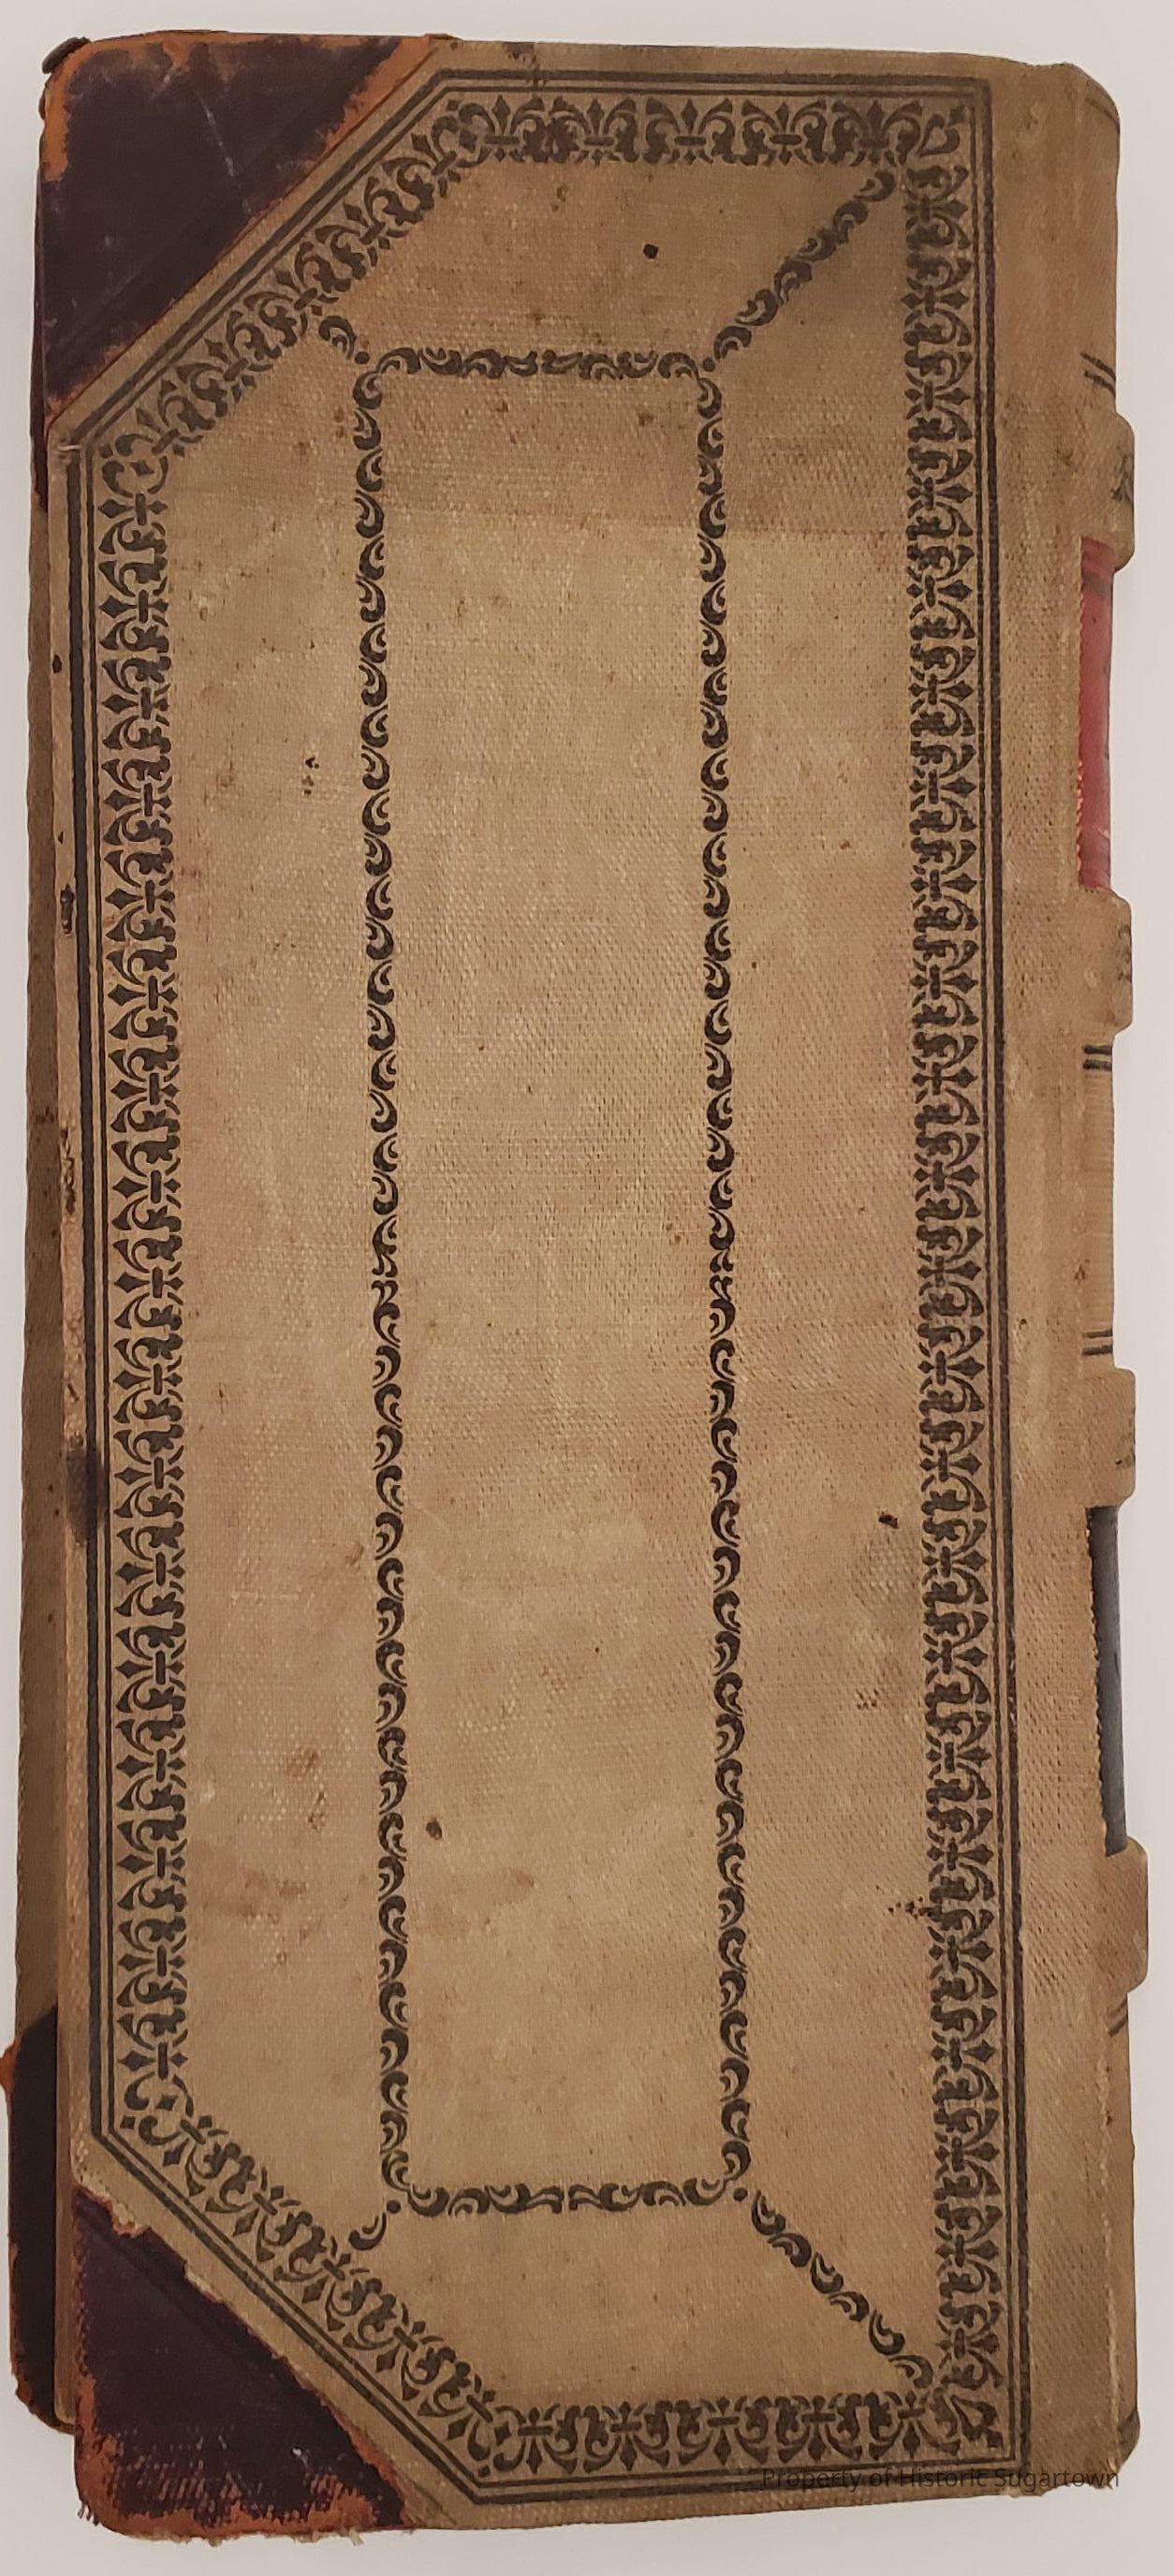 Property of Historic Sugartown